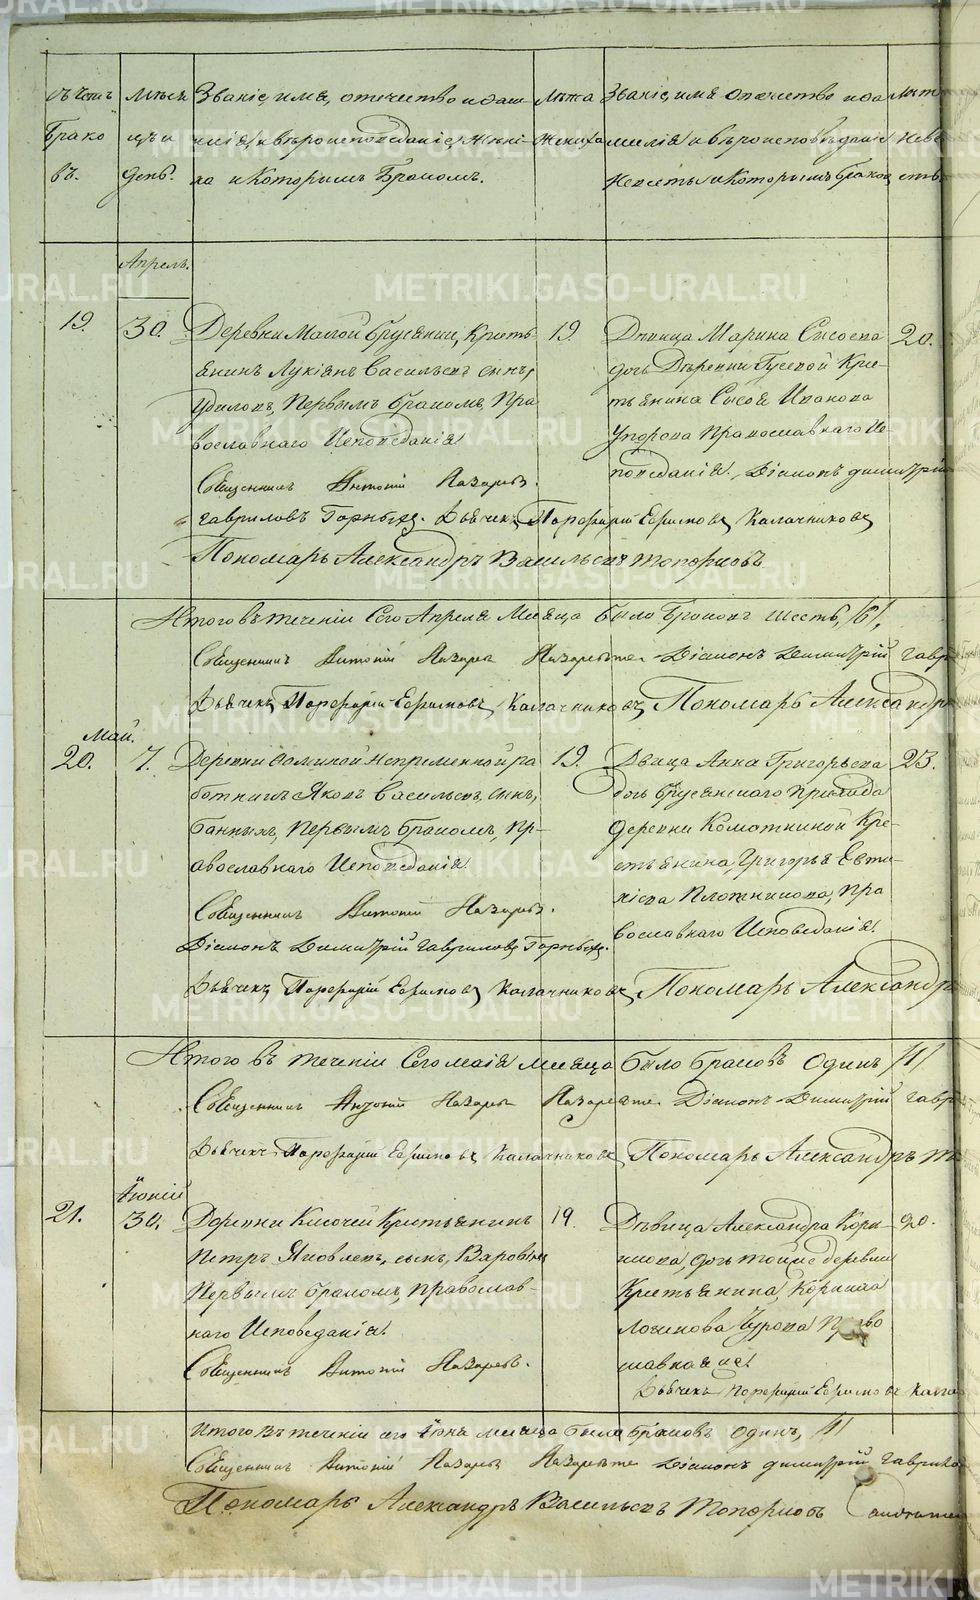 METRIKI.GASO-URAL.RU
Браковъ.
Месяцъ и день.
Званіе, имя, отечество и фамилія, и вѣроисповѣданіе жениха и которымъ бракомъ.
Лѣта жениха
Званіе имя отечество и фамилія и вѣроисповѣданіе невѣсты и которымъ бракомъ
Апрель.
19.
30.
Деревни Малой Брусянки, Кресть-
янинъ Лукіянъ Васильевъ сынъ,
Первымъ бракомъ, Пра
вославнаго Исповеданія
Священникъ Антоній Лазаревъ.
19.
Дѣвица Марина Сысоева
дочь Деревни Гусевой Кре-
стьянина Сысоя Иванова
Православнаго Ис-
поведанія. Діаконъ Димитрій
20.
Гавриловъ Горныхъ. Дьячекъ Порфирій Ефимовъ Калачниковъ
Пономарь Александръ Васильевъ Топорковъ
Итого въ теченіи Сего Апреля Месяца было Браковъ шесть, /6/,
Священникъ Антоній Лазаревъ Діаконъ Димитрій
Дьячекъ Порфирій Ефимовъ Калачниковъ Пономарь Александръ
Май.
20.
7.
Деревни непременной ра
ботникъ Яковъ Васильевъ, сынъ,
Банныхъ, Первымъ бракомъ, Пр-
авославнаго Исповеданія
Священникъ Антоній Лазаревъ.
Діаконъ Димитрій Гавриловъ Горныхъ.
19.
Дѣвица Анна Григорьева
дочь Брусянскаго прихода
деревни Комоткиной Кре-
стьянина, Григорья Евти-
хіева Плотникова, Пра
вославнаго Исповеданія
23.
Дьячекъ Порфирій Ефимовъ Калачниковъ Пономарь Александръ
Итого въ теченіи Сего маія месяца было браковъ Одинъ /1/
Священникъ Антоній Лазаревъ Діаконъ Димитрій
Дьячекъ Порфирій Ефимовъ Калачниковъ Пономарь Александръ
Іюній
21.
30.
Деревни Ключей Крестьянинъ
Петръ Яковлевъ, сынъ,
Первымъ бракомъ, православ-
наго Исповеданія.
Священникъ Антоній Лазаревъ.
19.
Дѣвица, Александра Корни-
лова, дочь тойже деревни
Крестьянина, Корнила
Логинова Чурова
20.
Дьячекъ Порфирій Ефимовъ
Итого въ теченіи сего Іюня месяца было браковъ Одинъ, /1/
Священникъ Антоній Лазаревъ Діаконъ Димитрій
Пономарь Александръ Васильевъ Топорковъ